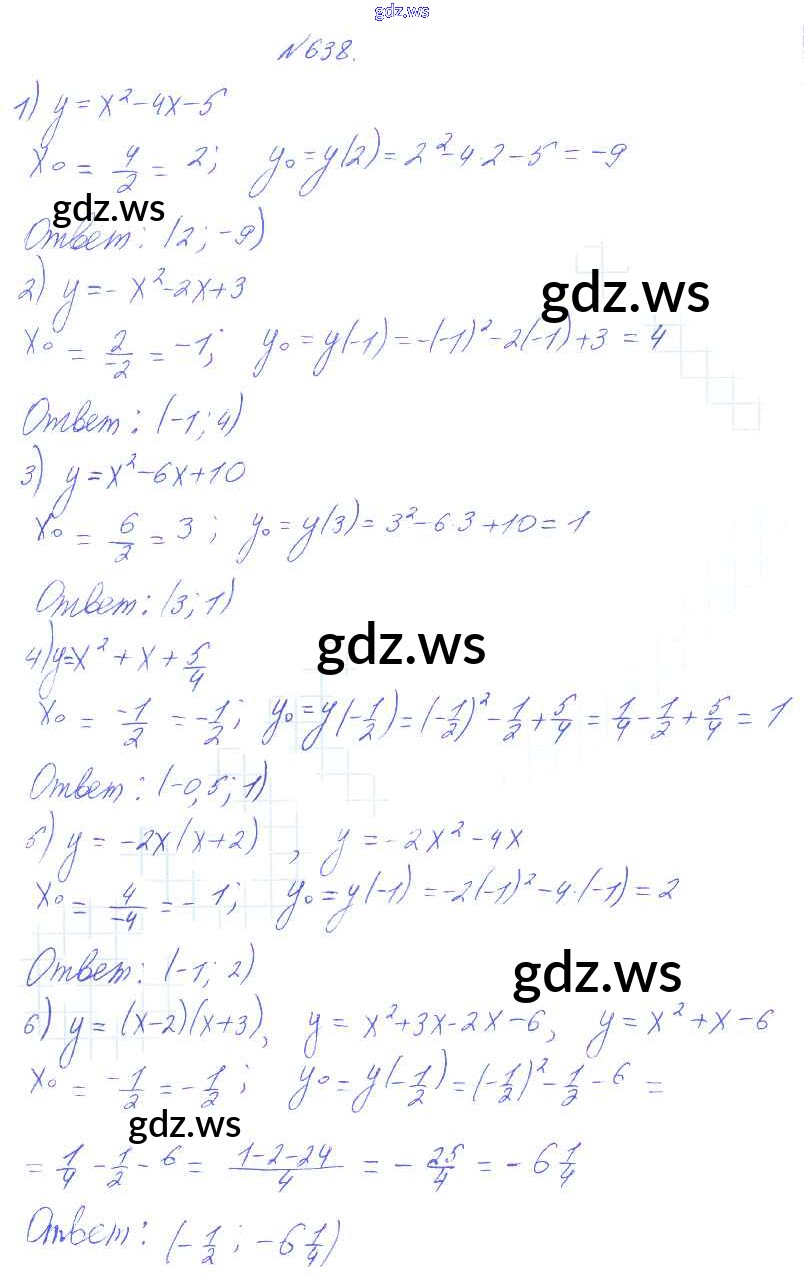 gdz.ws
№638.
1) y = x² - 4x - 5
x₀ = 4/2 = 2; y₀ = y(2) = 2² - 4·2 - 5 = -9
gdz.ws
Ответ: (2; -9)
2) y = - x² - 2x + 3
gdz.ws
x₀ = 2/-2 = -1; y₀ = y(-1) = -(-1)² - 2(-1) + 3 = 4
Ответ: (-1; 4)
3) y = x² - 6x + 10
x₀ = 6/2 = 3; y₀ = y(3) = 3² - 6·3 + 10 = 1
Ответ: (3; 1)
gdz.ws
4) y = x² + x + 5/4
x₀ = -1/2 = -1/2; y₀ = y(-1/2) = (-1/2)² - 1/2 + 5/4 = 1/4 - 1/2 + 5/4 = 1
Ответ: (-0,5; 1)
5) y = -2x(x+2), y = -2x² - 4x
x₀ = 4/-4 = -1; y₀ = y(-1) = -2(-1)² - 4·(-1) = 2
Ответ: (-1; 2)
gdz.ws
6) y = (x-2)(x+3), y = x² + 3x - 2x - 6, y = x² + x - 6
x₀ = -1/2 = -1/2; y₀ = y(-1/2) = (-1/2)² - 1/2 - 6 =
gdz.ws
= 1/4 - 1/2 - 6 = 1-2-24/4 = - 25/4 = -6 1/4
Ответ: (-1/2; -6 1/4)